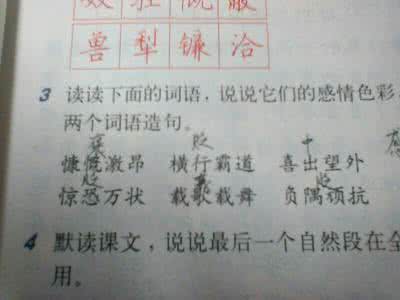 兽 犁 镰 洽
3 读读下面的词语，说说它们的感情色彩
两个词语造句。
褒 贬 中
慷慨激昂 横行霸道 喜出望外
贬 褒 贬
惊恐万状 载歌载舞 负隅顽抗
4 默读课文，说说最后一个自然段在全
用。